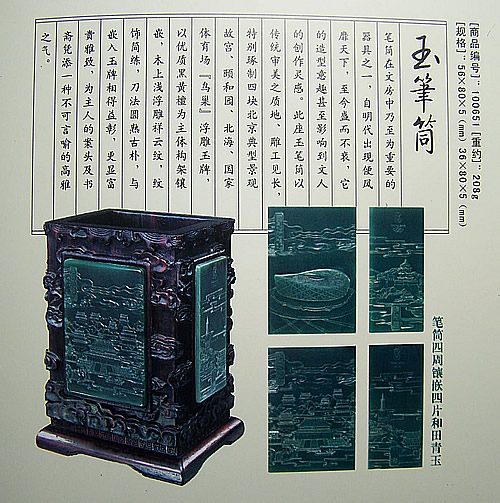 [商品编号]：00651 [重约]：208g
[规格]：56×80×5（mm）36×80×5（mm）
玉筆筒
笔筒在文房中乃至为重要的
器具之一，自明代出现便风
靡天下，至今盛而不衰，它
的造型意趣甚至影响到文人
的创作灵感。此座玉笔筒以
传统审美之质地、雕工见长，
特别琢制四块北京典型景观
故宫、颐和园、北海、国家
体育场『鸟巢』浮雕玉牌，
以优质黑黄檀为主体构架镶
嵌，木上浅浮雕祥云纹，纹
饰简练，刀法圆熟古朴，与
嵌入玉牌相得益彰，更显富
贵雅致，为主人的案头及书
斋凭添一种不可言喻的高雅
之气。
笔筒四周镶嵌四片和田青玉